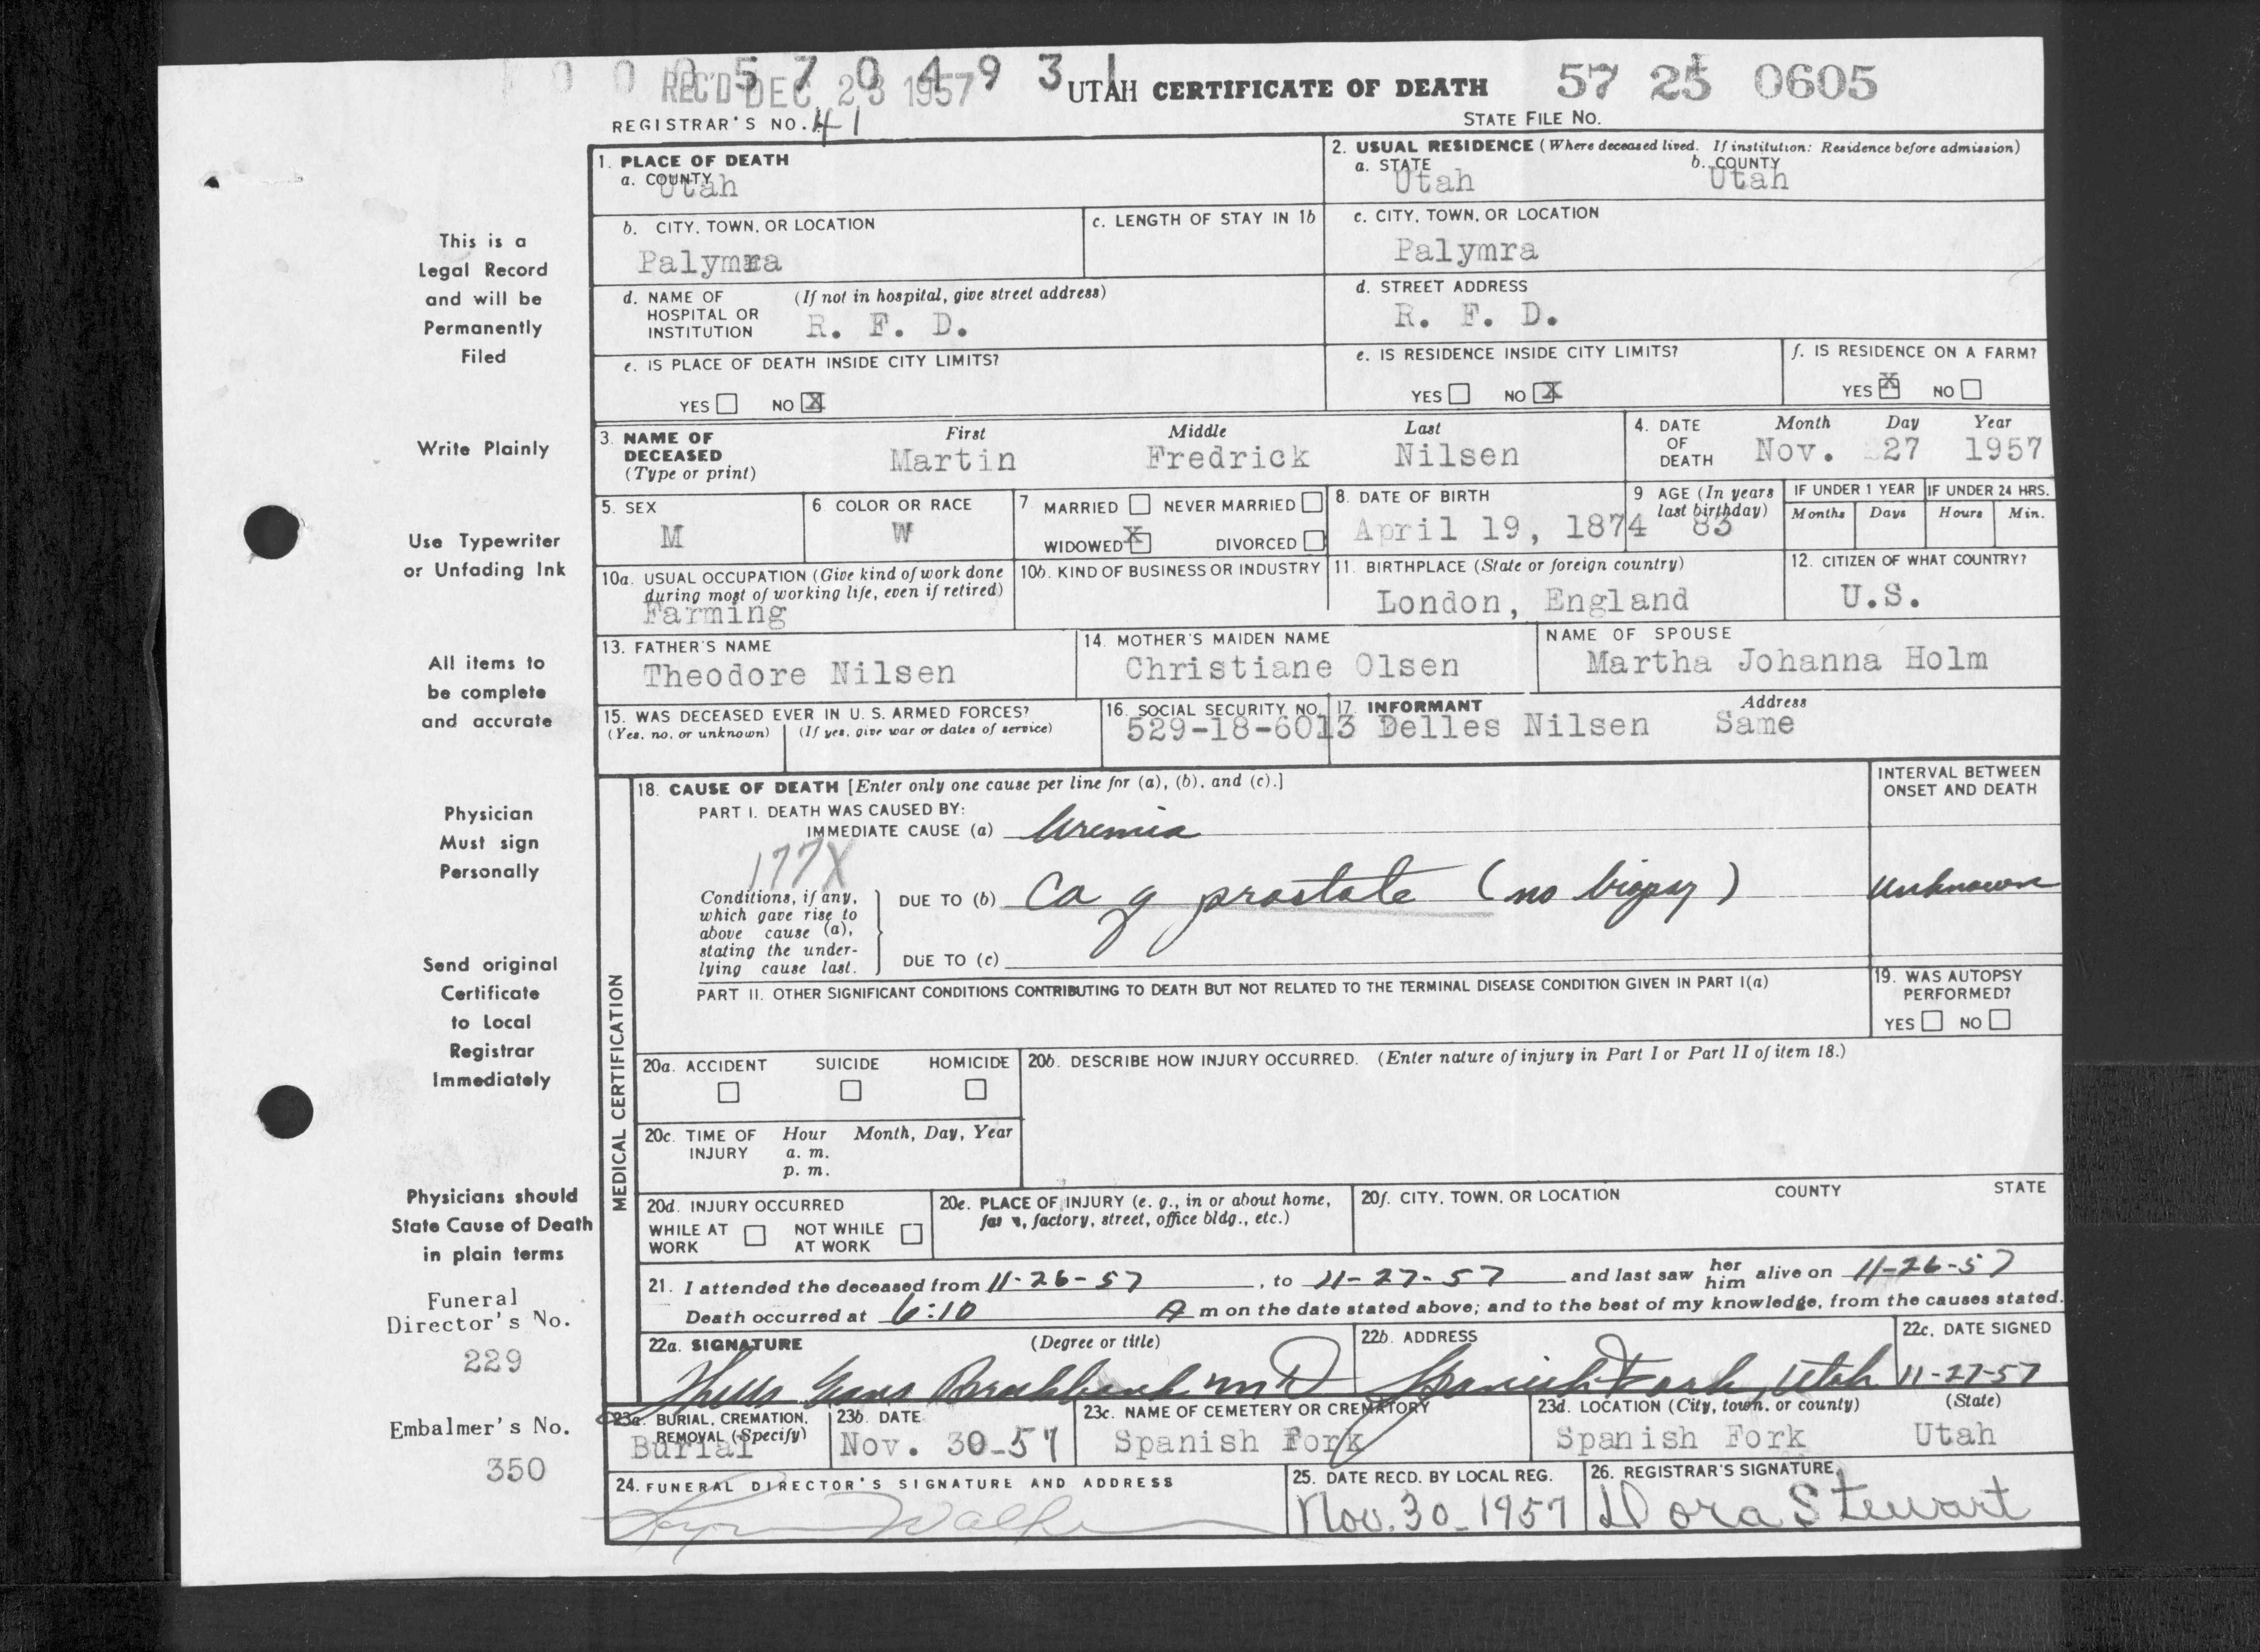 0 0 0 5 7 0 4 9 3 1
REC'D DEC 23 1957
UTAH CERTIFICATE OF DEATH
57 25 0605
REGISTRAR'S NO. 41
STATE FILE No.
1. PLACE OF DEATH
a. COUNTY
Utah
2. USUAL RESIDENCE (Where deceased lived. If institution: Residence before admission)
a. STATE
Utah
b. COUNTY
Utah
b. CITY, TOWN, OR LOCATION
Palymra
c. LENGTH OF STAY IN 1b
c. CITY, TOWN, OR LOCATION
Palymra
d. NAME OF HOSPITAL OR INSTITUTION
(If not in hospital, give street address)
R. F. D.
d. STREET ADDRESS
R. F. D.
e. IS PLACE OF DEATH INSIDE CITY LIMITS?
YES NO X
e. IS RESIDENCE INSIDE CITY LIMITS?
YES NO X
f. IS RESIDENCE ON A FARM?
YES X NO
3. NAME OF DECEASED (Type or print)
First Middle Last
Martin Fredrick Nilsen
4. DATE OF DEATH
Month Day Year
Nov. 27 1957
5. SEX
M
6 COLOR OR RACE
W
7 MARRIED NEVER MARRIED
WIDOWED X DIVORCED
8. DATE OF BIRTH
April 19, 1874
9 AGE (In years last birthday)
83
IF UNDER 1 YEAR
Months Days
IF UNDER 24 HRS.
Hours Min.
10a. USUAL OCCUPATION (Give kind of work done during most of working life, even if retired)
Farming
10b. KIND OF BUSINESS OR INDUSTRY
11. BIRTHPLACE (State or foreign country)
London, England
12. CITIZEN OF WHAT COUNTRY?
U.S.
13. FATHER'S NAME
Theodore Nilsen
14. MOTHER'S MAIDEN NAME
Christiane Olsen
NAME OF SPOUSE
Martha Johanna Holm
15. WAS DECEASED EVER IN U. S. ARMED FORCES?
(Yes, no, or unknown) (If yes, give war or dates of service)
16. SOCIAL SECURITY NO.
529-18-6013
17. INFORMANT Address
Delles Nilsen Same
MEDICAL CERTIFICATION
18. CAUSE OF DEATH [Enter only one cause per line for (a), (b), and (c).]
INTERVAL BETWEEN ONSET AND DEATH
PART I. DEATH WAS CAUSED BY:
IMMEDIATE CAUSE (a) Uremia
177X
Conditions, if any, which gave rise to above cause (a), stating the underlying cause last.
DUE TO (b) Ca of prostate (no biopsy) Unknown
DUE TO (c)
PART II. OTHER SIGNIFICANT CONDITIONS CONTRIBUTING TO DEATH BUT NOT RELATED TO THE TERMINAL DISEASE CONDITION GIVEN IN PART I(a)
19. WAS AUTOPSY PERFORMED?
YES NO
20a. ACCIDENT SUICIDE HOMICIDE
20b. DESCRIBE HOW INJURY OCCURRED. (Enter nature of injury in Part I or Part II of item 18.)
20c. TIME OF INJURY Hour Month, Day, Year
a. m.
p. m.
20d. INJURY OCCURRED
WHILE AT WORK NOT WHILE AT WORK
20e. PLACE OF INJURY (e. g., in or about home, farm, factory, street, office bldg., etc.)
20f. CITY, TOWN, OR LOCATION COUNTY STATE
21. I attended the deceased from 11-26-57, to 11-27-57 and last saw her him alive on 11-26-57
Death occurred at 6:10 A m on the date stated above; and to the best of my knowledge, from the causes stated.
22a. SIGNATURE (Degree or title)
Brockbank MD
22b. ADDRESS
Spanish Fork, Utah
22c. DATE SIGNED
11-27-57
23a. BURIAL, CREMATION, REMOVAL (Specify)
Burial
23b. DATE
Nov. 30-57
23c. NAME OF CEMETERY OR CREMATORY
Spanish Fork
23d. LOCATION (City, town, or county) (State)
Spanish Fork Utah
24. FUNERAL DIRECTOR'S SIGNATURE AND ADDRESS
25. DATE RECD. BY LOCAL REG.
Nov. 30-1957
26. REGISTRAR'S SIGNATURE
Dora Stewart
This is a
Legal Record
and will be
Permanently
Filed
Write Plainly
Use Typewriter
or Unfading Ink
All items to
be complete
and accurate
Physician
Must sign
Personally
Send original
Certificate
to Local
Registrar
Immediately
Physicians should
State Cause of Death
in plain terms
Funeral
Director's No.
229
Embalmer's No.
350